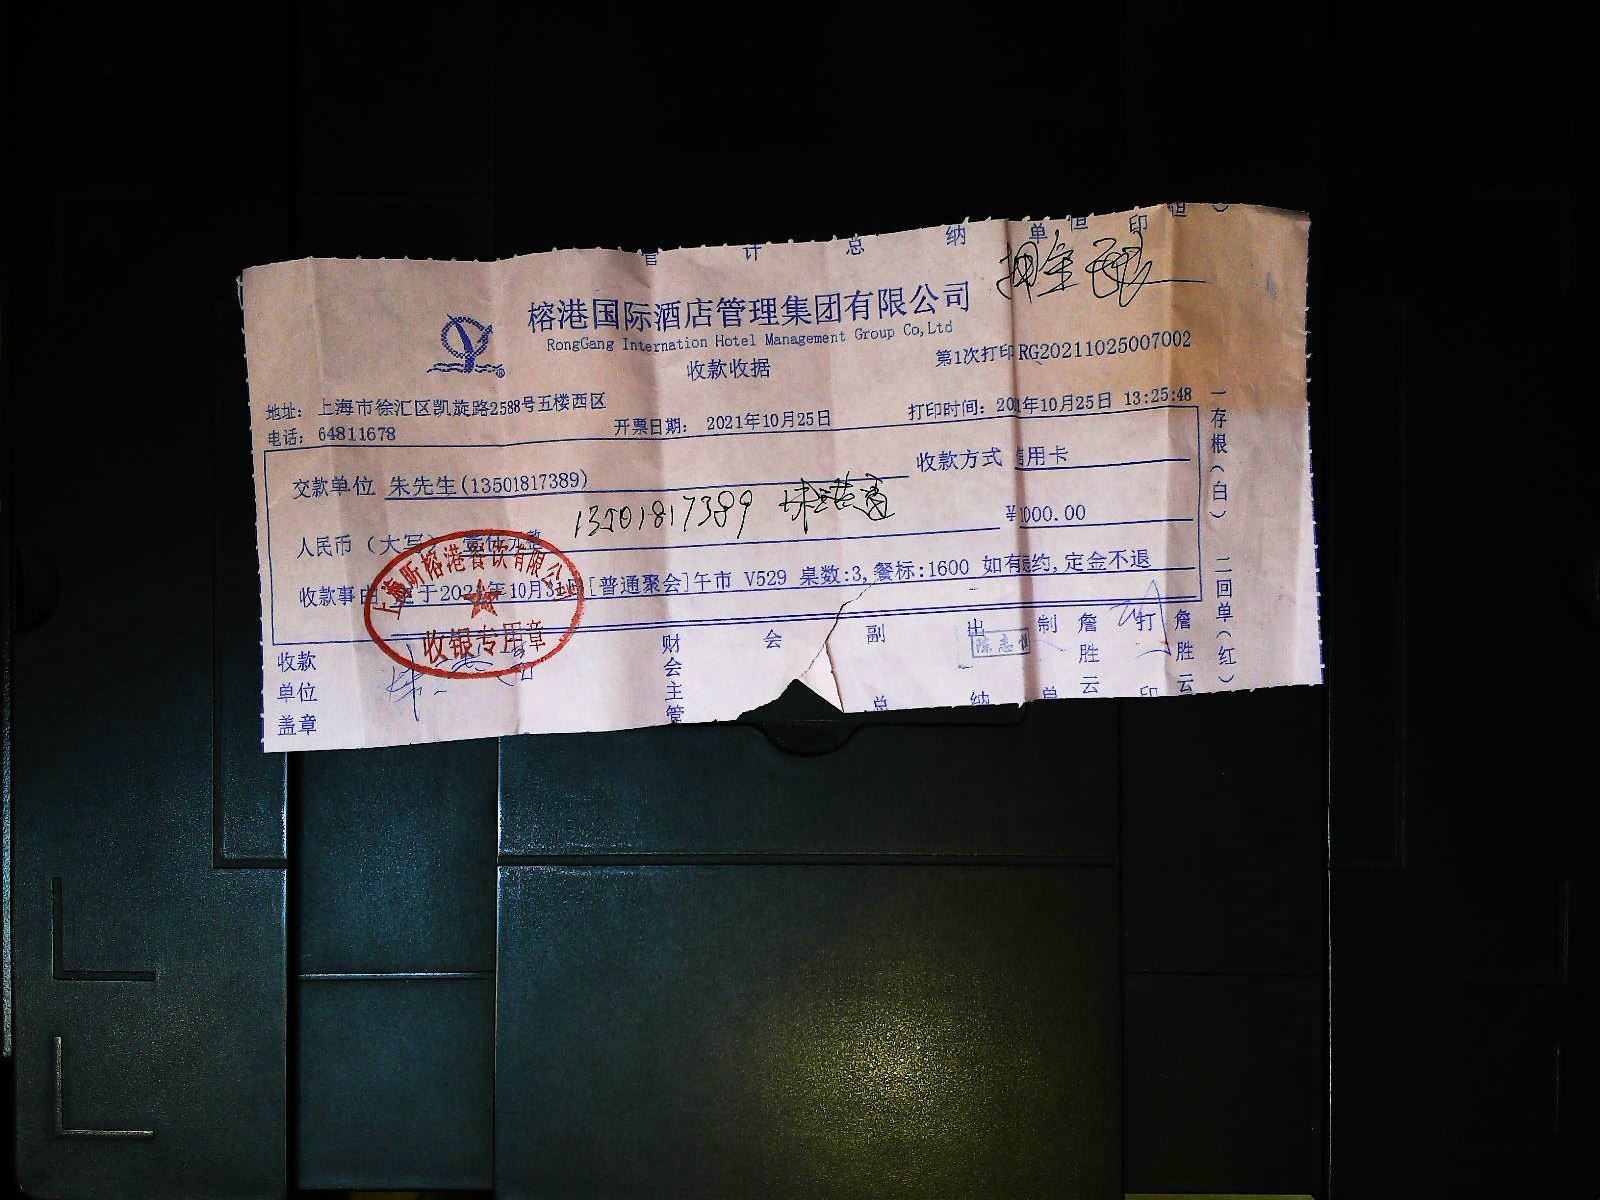 管 计 总 纳 单 恒 印 恒 )
押金 已退
榕港国际酒店管理集团有限公司
RongGang Internation Hotel Management Group Co,Ltd
收款收据
第1次打印 RG20211025007002
地址: 上海市徐汇区凯旋路2588号五楼西区
电话: 64811678
开票日期: 2021年10月25日
打印时间: 2021年10月25日 13:25:48
交款单位 朱先生(13501817389)
收款方式 信用卡
13501817389
人民币(大写) 壹仟元整
¥1000.00
收款事由 定于2021年10月31日[普通聚会]午市 V529 桌数:3,餐标:1600 如有违约,定金不退
上海昕榕港餐饮有限公司
收银专用章
收款单位盖章
财会主管
会
副总
出纳
制单
詹胜云
打印
詹胜云
一存根(白) 二回单(红)